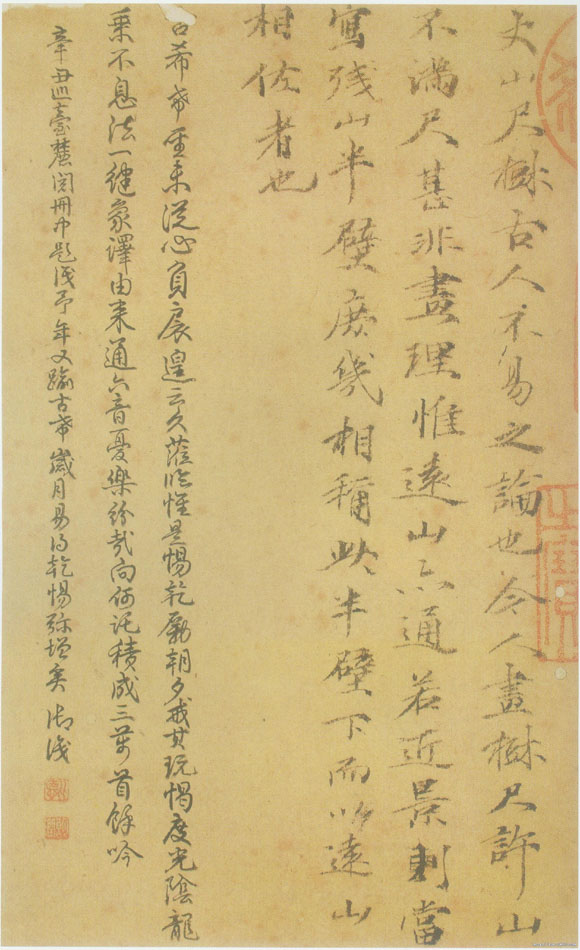 丈山尺樹古人不易之論也今人畫樹尺許山
不滿尺甚非畫理惟遠山亦通若近景則當
寫殘山半壁庶幾相稱此半壁下而以遠山
相佐者也
古希幸至未從心負扆遑云久蒞臨惟是惕乾勵朝夕戒其玩愒度光陰龍
乘不息法一健象譯由来通六音憂樂紛哉向何託積成三萬首餘吟
辛丑巡臺麓閱冊中題識予年又踰古希歲月易得乾惕弥增矣 御識